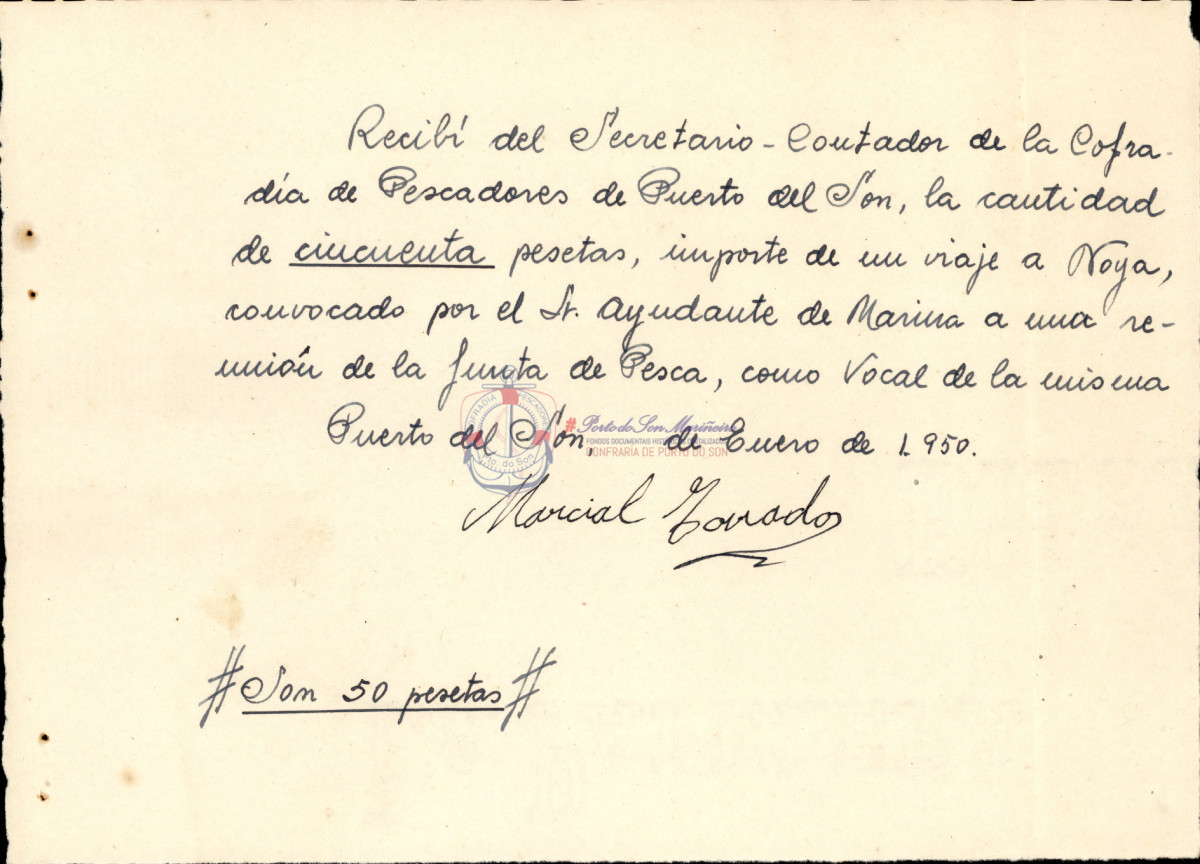 Recibí del Secretario-Contador de la Cofra-
día de Pescadores de Puerto del Son, la cantidad
de cincuenta pesetas, importe de un viaje a Noya,
convocado por el Sr. Ayudante de Marina a una re-
unión de la Junta de Pesca, como Vocal de la misma
Puerto del Son, de Enero de 1.950.
COFRADIA PESCADORES
Pto. do Son
#Porto do Son Mariñeiro
FONDOS DOCUMENTAIS DIGITALIZADOS
CONFRARÍA DE PORTO DO SON
Marcial
# Son 50 pesetas #